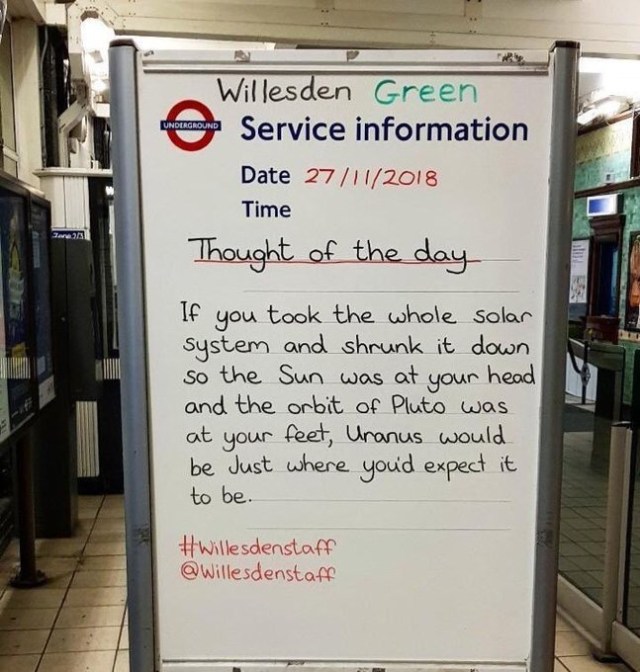 Willesden Green
UNDERGROUND Service information
Date 27/11/2018
Time
Thought of the day
If you took the whole solar
system and shrunk it down
so the Sun was at your head
and the orbit of Pluto was
at your feet, Uranus would
be Just where you'd expect it
to be.
#Willesdenstaff
@Willesdenstaff
Zone 2/3